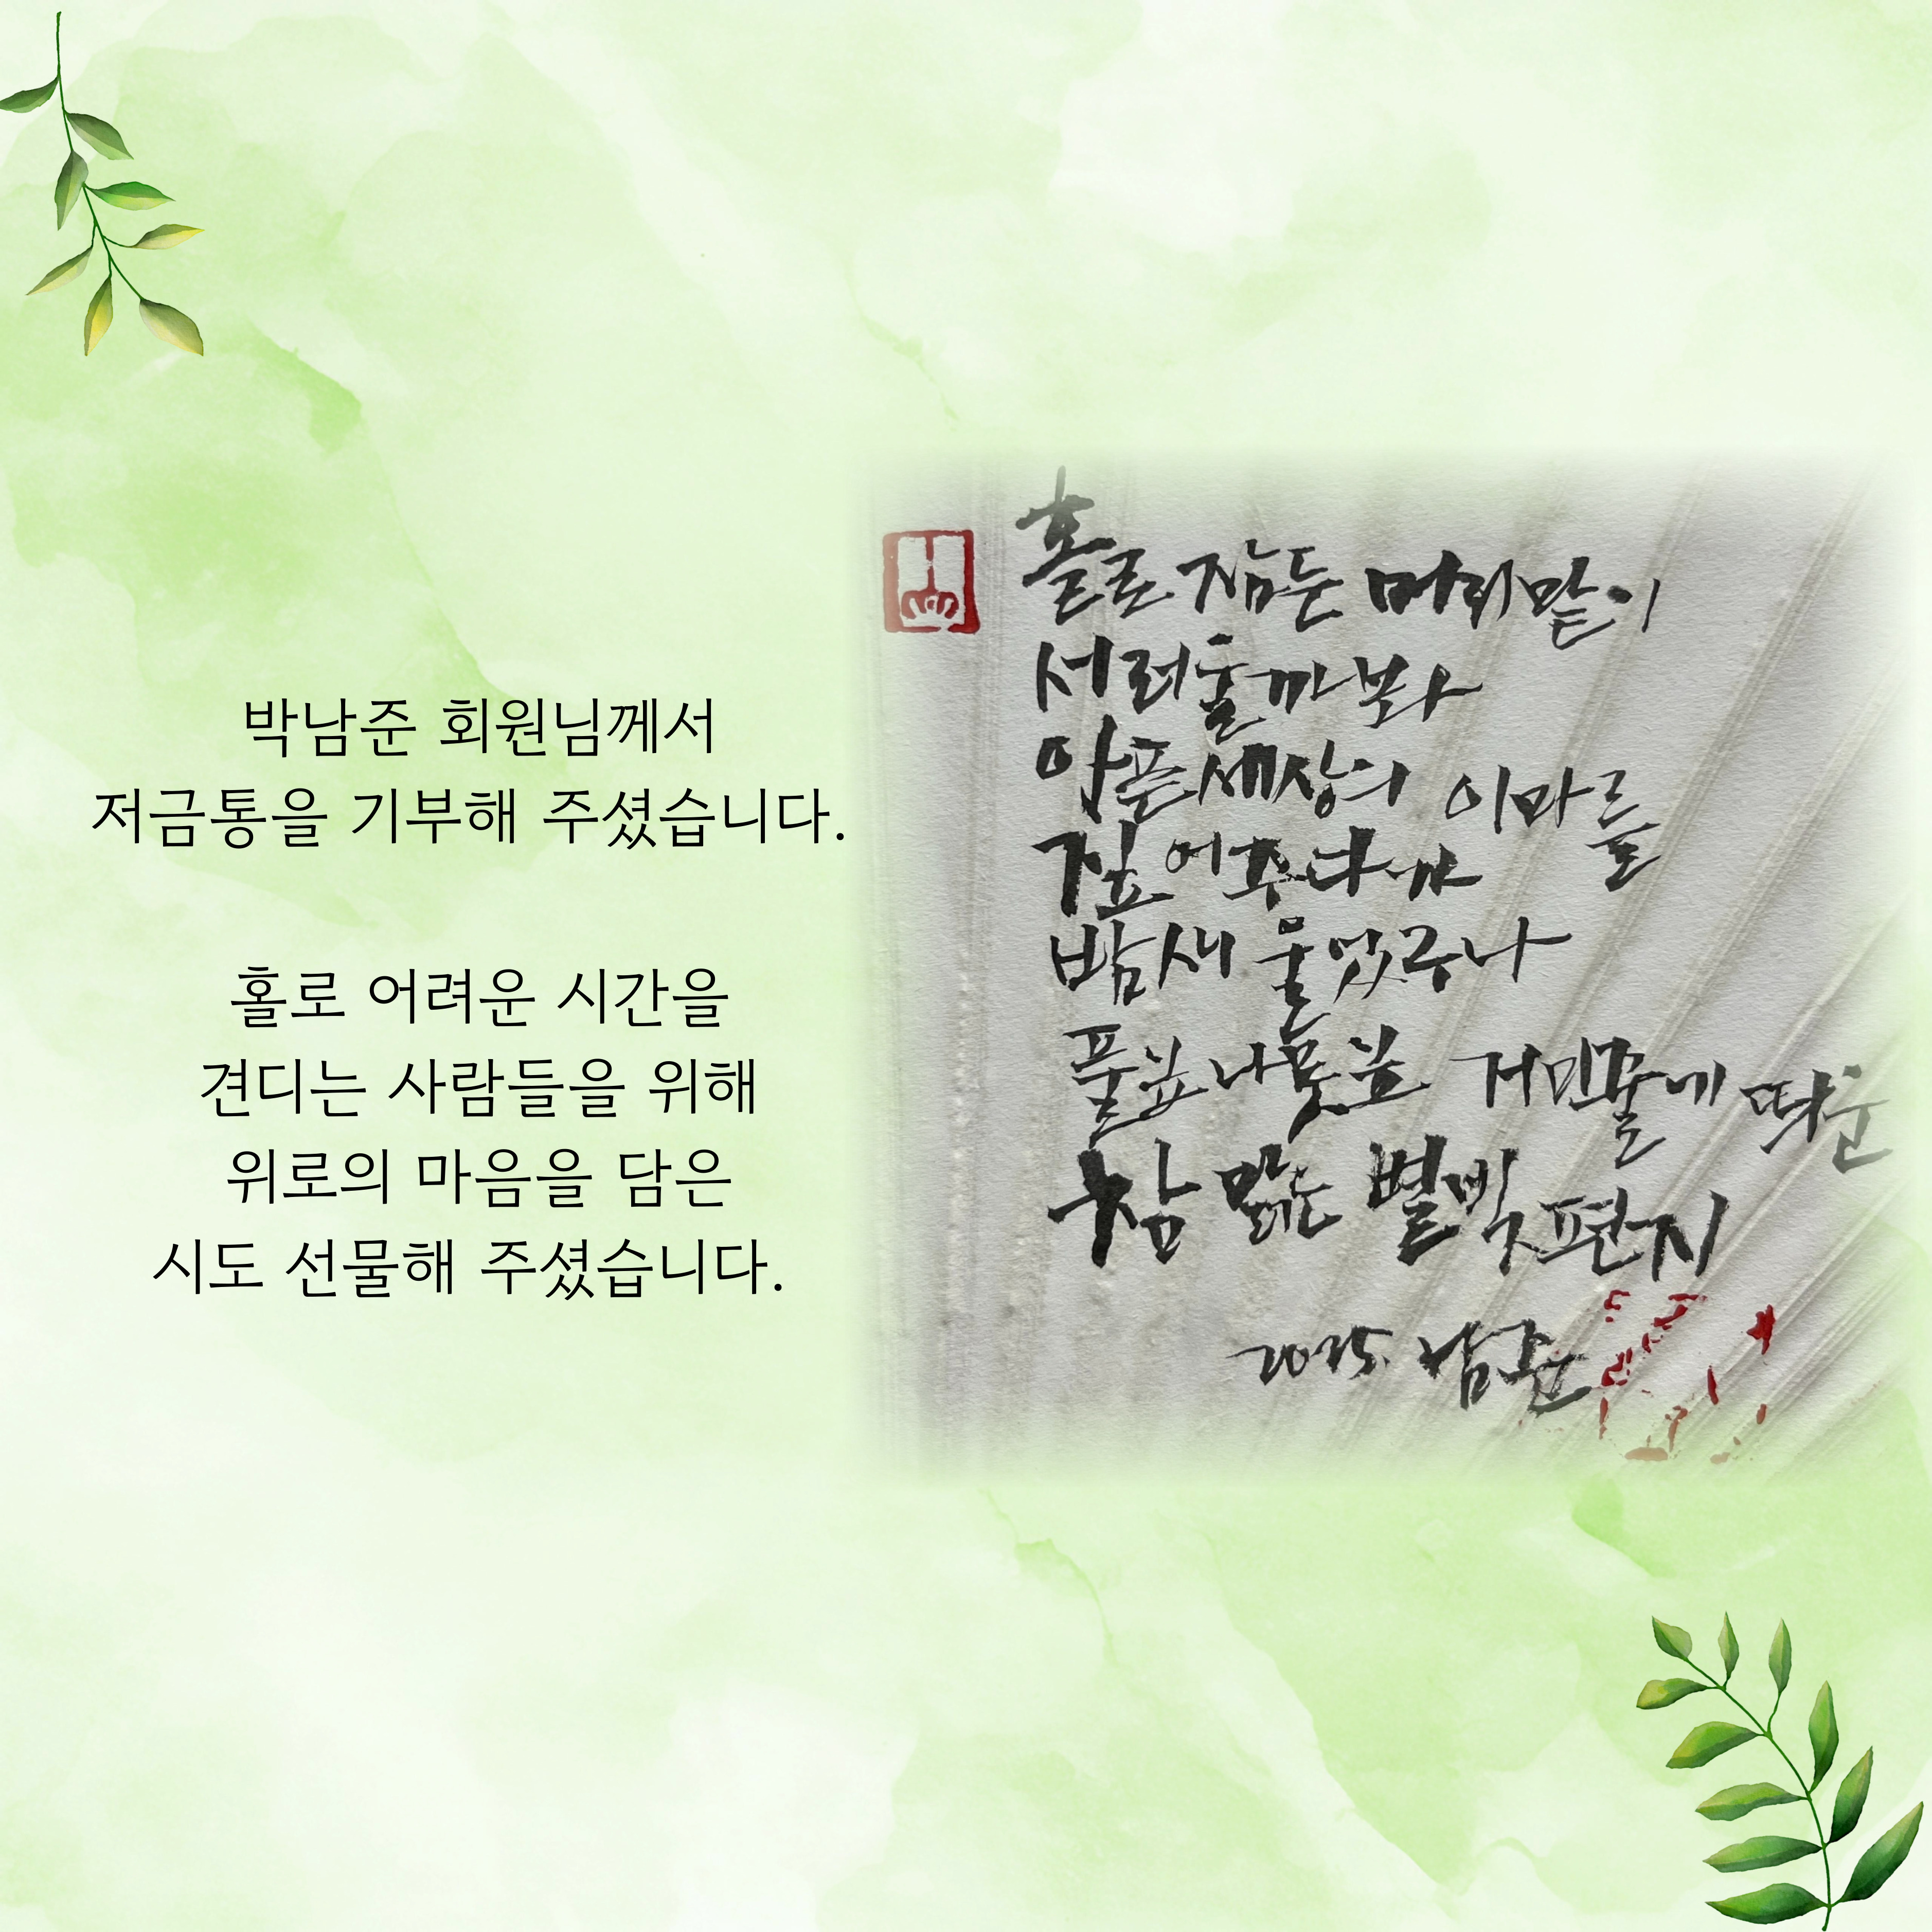 박남준 회원님께서
저금통을 기부해 주셨습니다.
홀로 어려운 시간을
견디는 사람들을 위해
위로의 마음을 담은
시도 선물해 주셨습니다.
홀로 잠든 머리맡이
서러울까봐
아픈 세상의 이마를
짚어주다가
밤새 울었구나
풀잎 나뭇잎 거미줄에 띄운
참 맑은 별빛 편지
2025. 남준